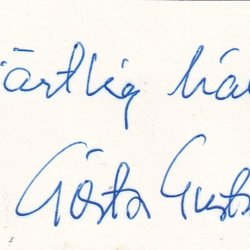 järtlig häl
Gösta Gusta